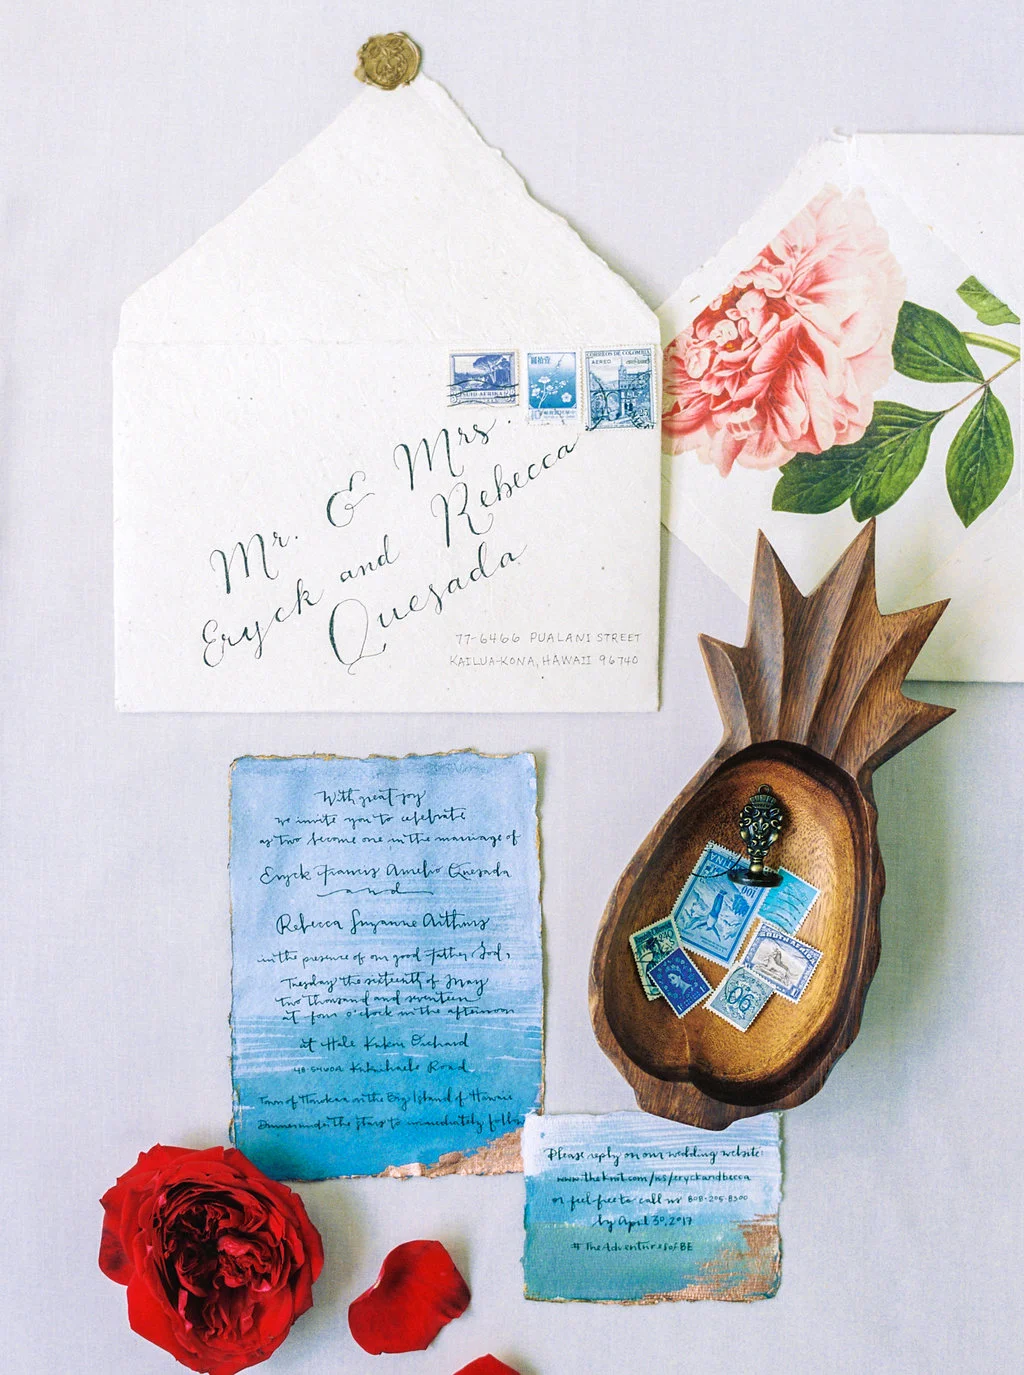 CORREOS DE COLOMBIA
AEREO
SUID-AFRIKA
10
Mr. & Mrs.
Eryck and Rebecca
Quesada
77-6466 PUALANI STREET
KAILUA-KONA, HAWAII 96740
With great joy
we invite you to celebrate
as two become one in the marriage of
Eryck Francis Amelio Quesada
and
Rebecca Suzanne Arthurs
in the presence of our good Father God,
Tuesday the sixteenth of May
two thousand and seventeen
at four o'clock in the afternoon
at Hale Kukui Orchard
Road
Town of Honokaa on the Big Island of Hawaii
Dinner under the stars to immediately follow
TINA
100
SOUTH AFRICA
90
Please reply on our wedding website
www.theknot.com/us/eryckandbecca
or feel free to call us 808-205-8300
by April 30, 2017
#TheAdventuresofBE